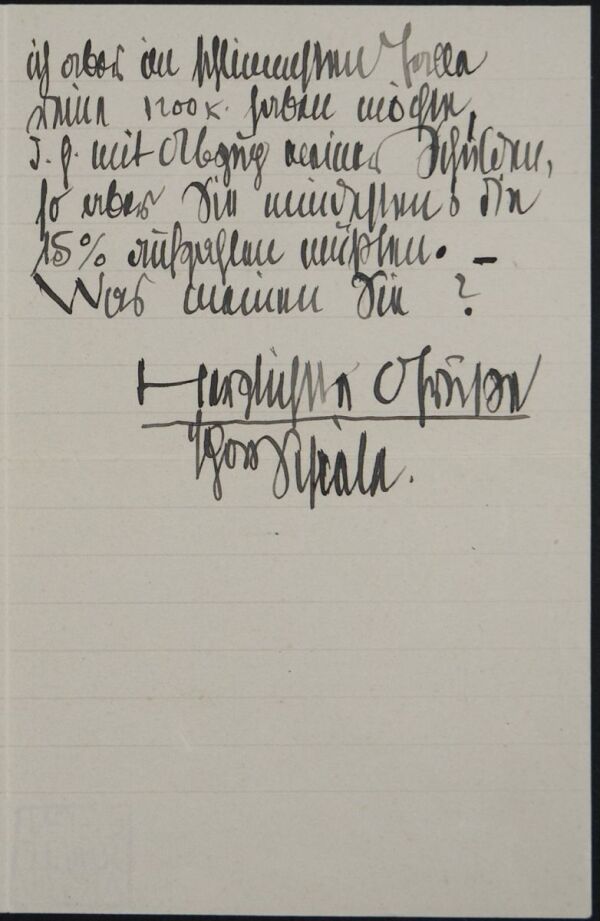 ich aber im schlimmsten Falle
reine 1200 K. haben möchte,
d. h. mit Abzug meiner Schulden,
so aber Sie mindestens die
15% aufzahlen müßten. –
Was meinen Sie ?
Herzlichste Grüße
Egon Schiele.